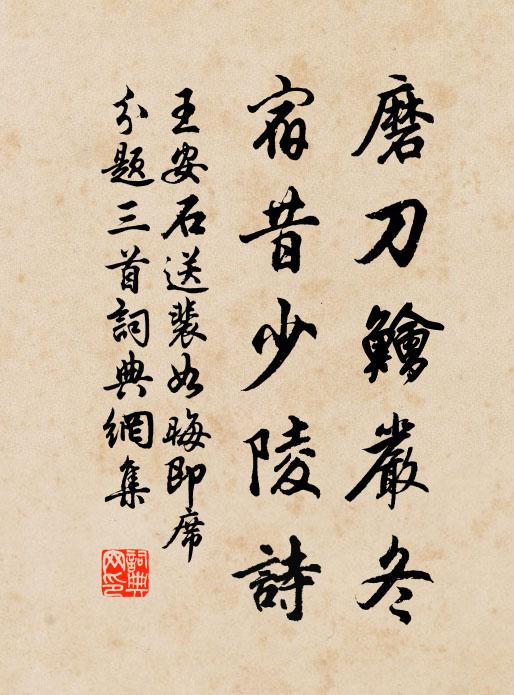 磨刀鱠嚴冬
宿昔少陵詩
王安石送裴如晦即席
分題三首詞典網集
詞典網印